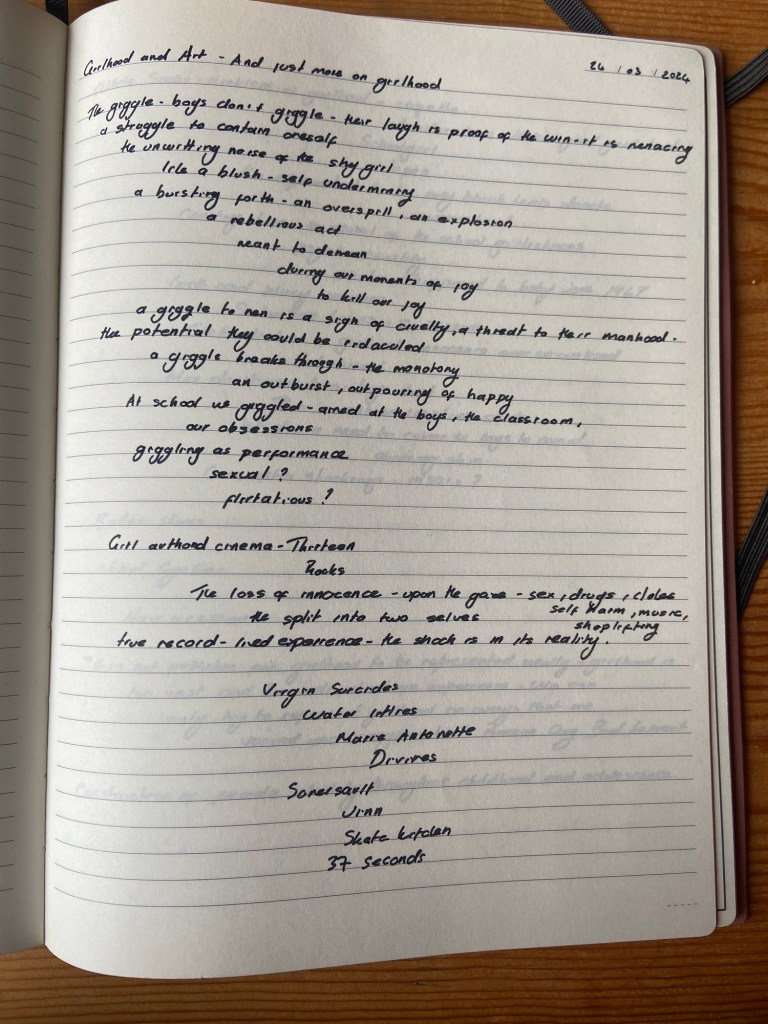 Girlhood and Art - And just more on girlhood
24 / 03 / 2024
The giggle - boys don't giggle - their laugh is proof of the win - it is menacing
a struggle to contain oneself
the unwitting noise of the shy girl
like a blush - self undermining
a bursting forth - an overspill, an explosion
a rebellious act
meant to demean
during our moments of joy
to kill our joy
a giggle to men is a sign of cruelty, a threat to their manhood.
the potential they could be ridaculed
a giggle breaks through - the monotony
an outburst, outpouring of happy
At school we giggled - aimed at the boys, the classroom,
our obsessions
giggling as performance
sexual?
flirtatious?
Girl authord cinema - Thirteen
Rocks
The loss of innocence - upon the gaze - sex, drugs,
self harm, music,
the split into two selves
shoplifting
true record - lived experience - the shock is in its reality.
Virgin Suicides
Water lillies
Marie Antoinette
Divines
Somersault
Jinn
Skate kitchen
37 seconds